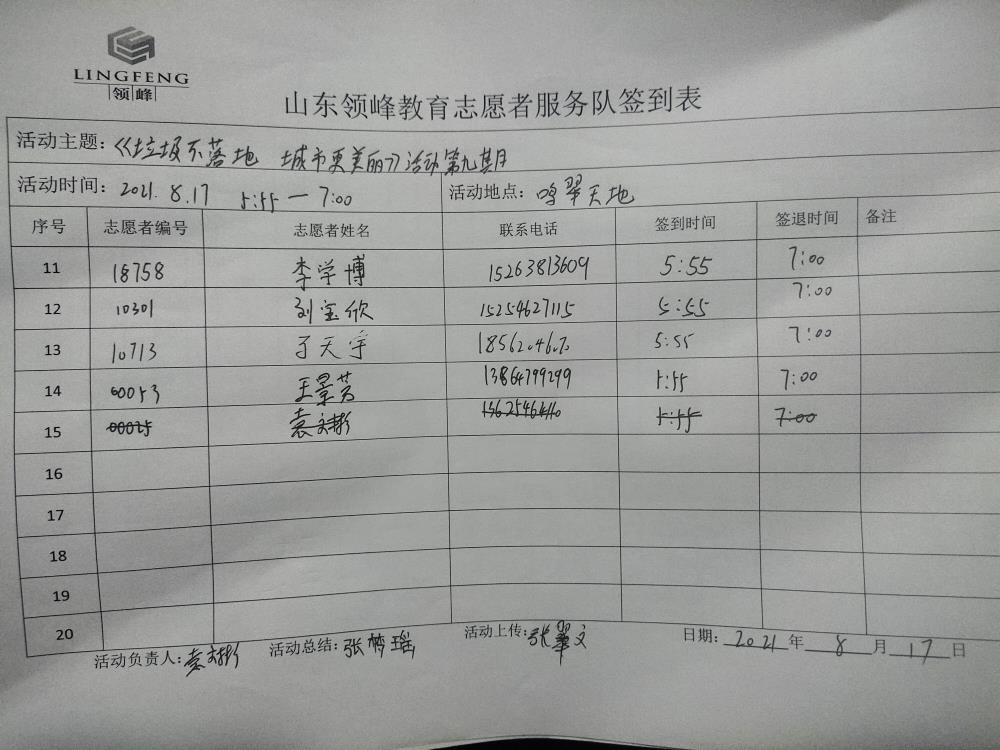 LINGFENG
领峰
山东领峰教育志愿者服务队签到表
活动主题：《垃圾不落地 城市更美丽》活动第九期
活动时间：2021.8.17 5:55—7:00 活动地点：鸣翠天地
序号 志愿者编号 志愿者姓名 联系电话 签到时间 签退时间 备注
11 18758 李学博 15263813609 5:55 7:00
12 10301 刘宝欣 15254627115 5:55 7:00
13 10713 于天宇 5:55 7:00
14 00053 王景芳 13864799299 5:55 7:00
15 00025 袁文彬 5:55 7:00
16
17
18
19
20
活动负责人：袁文彬 活动总结：张梦瑶 活动上传：张翠文 日期：2021年8月17日